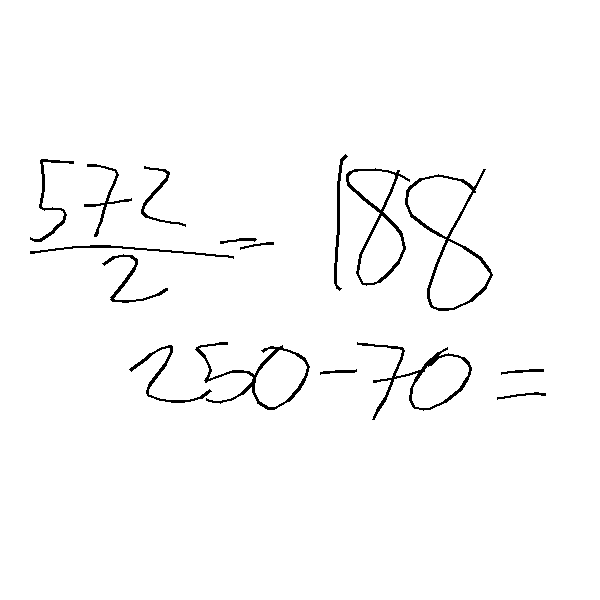 572/2 = 188
250-70=